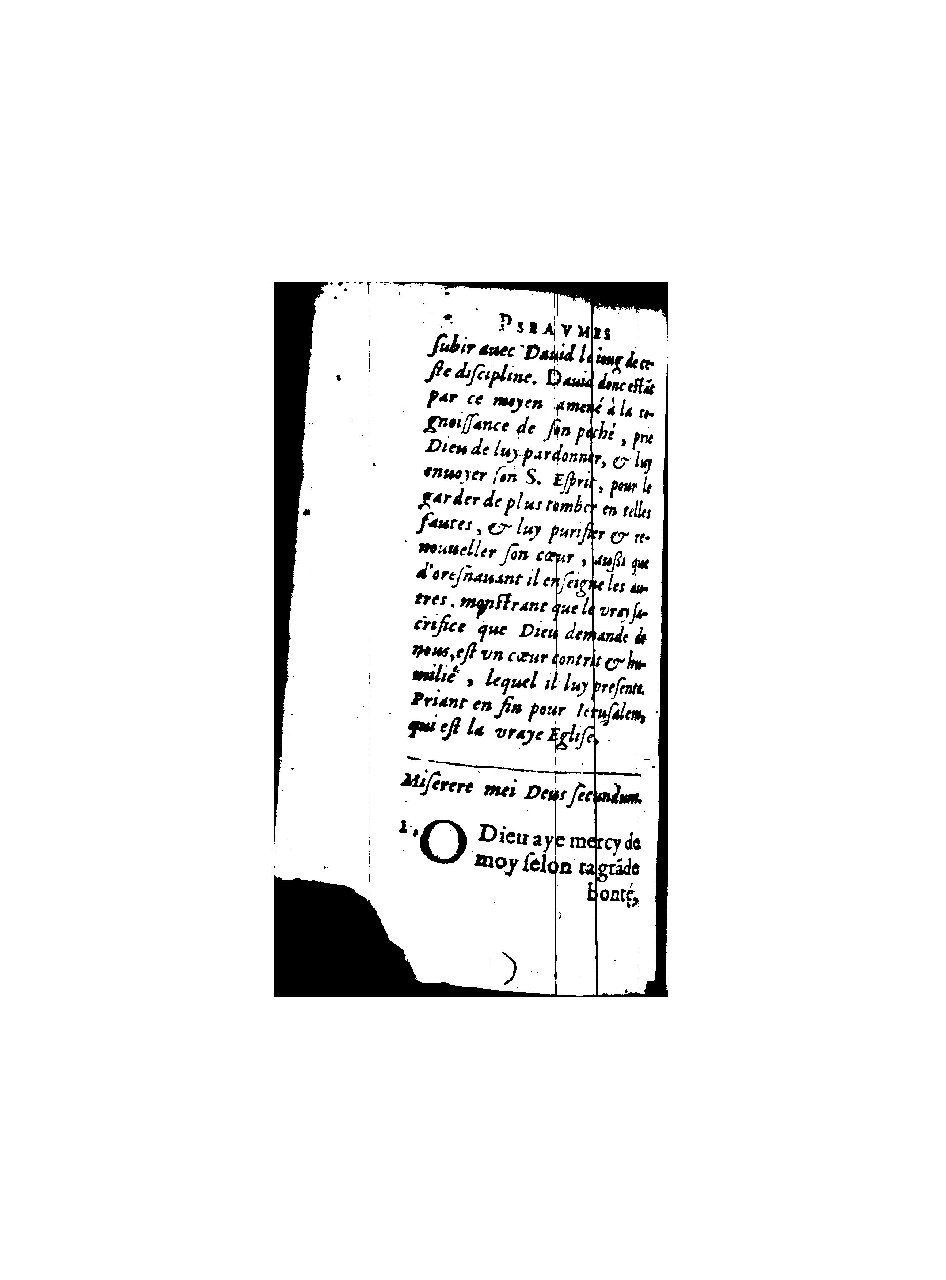 PSEAVMES
ſubir auec Dauid le ioug de ce-
ſte diſcipline. Dauid donc eſtāt
par ce moyen amené à la co-
gnoiſſance de ſon peché, prie
Dieu de luy pardonner, & luy
enuoyer ſon S. Eſprit, pour le
garder de plus tomber en telles
fautes, & luy purifier & re-
nouueller ſon cœur, auſſi que
d'oreſnauant il enſeigne les au-
tres. monſtrant que le vray ſa-
crifice que Dieu demande de
nous, eſt vn cœur contrit & hu-
milié, lequel il luy preſente.
Priant en fin pour Ieruſalem,
qui eſt la vraye Egliſe.
Miſerere mei Deus ſecundum.
1. O Dieu aye mercy de
moy ſelon ta grāde
bonté,